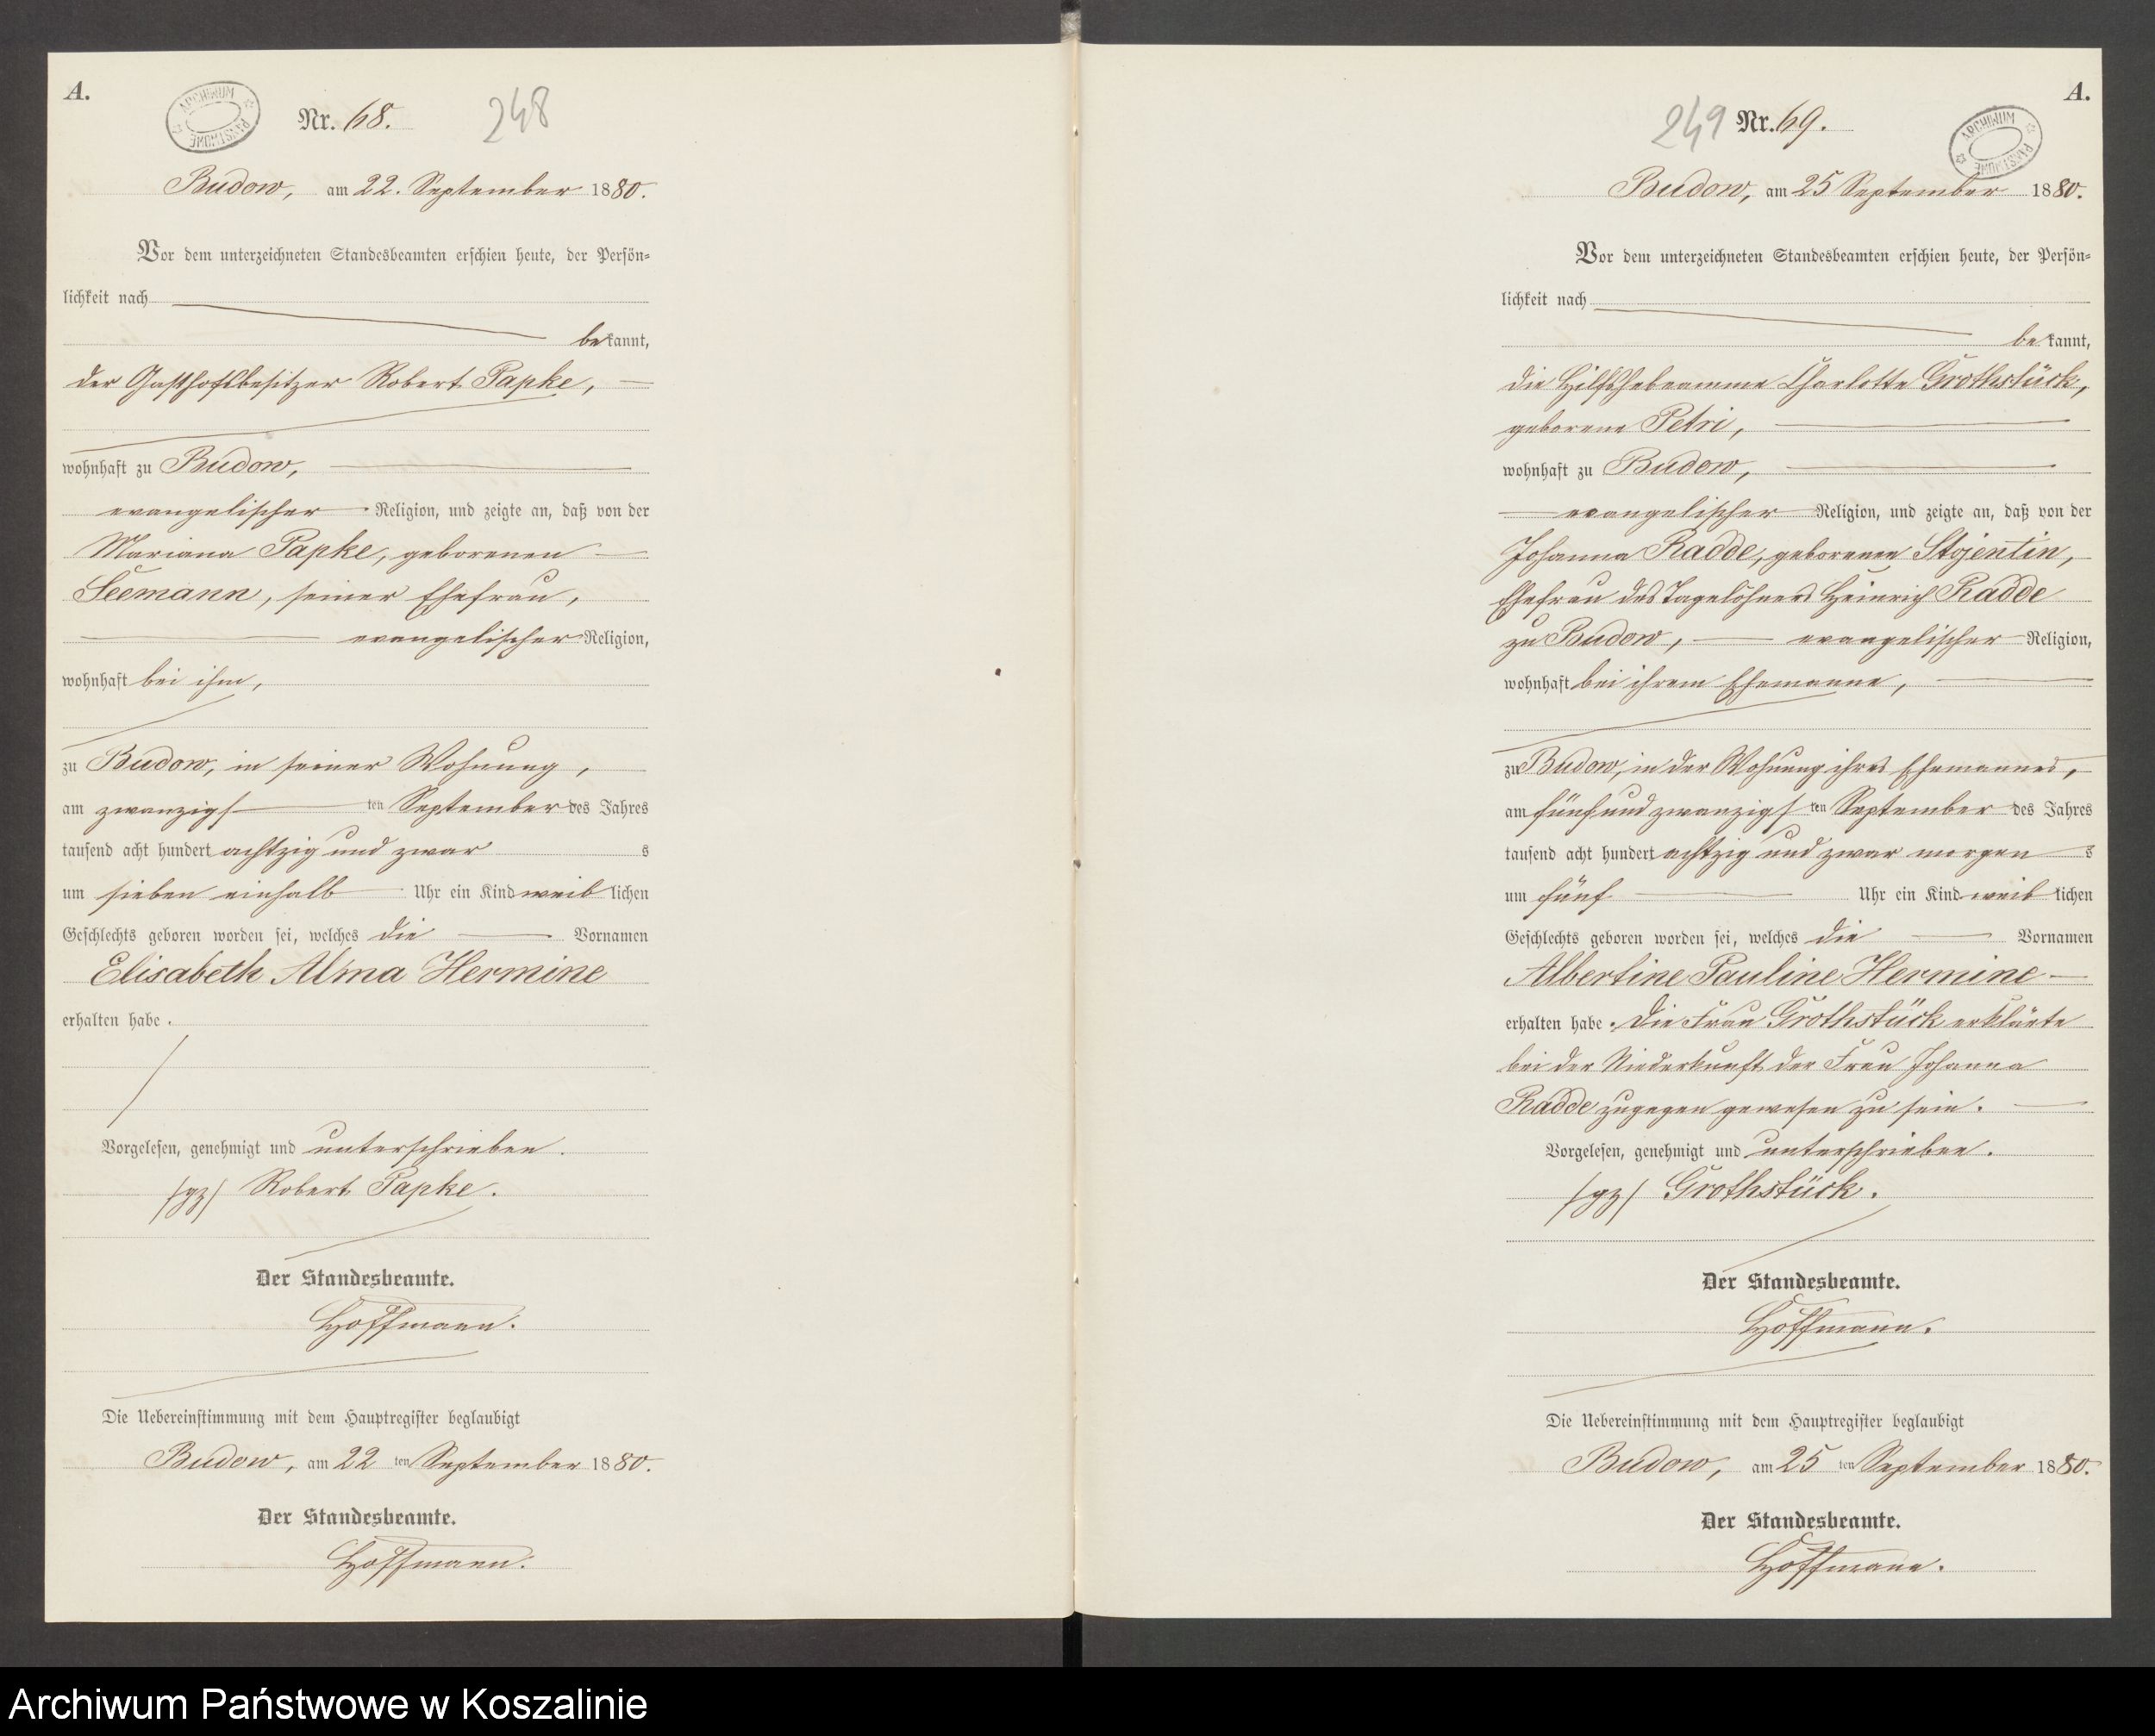 A.
ARCHIWUM PAŃSTWOWE
Nr. 68.
248
Budow, am 22. September 1880.
Vor dem unterzeichneten Standesbeamten erschien heute, der Persön-
lichkeit nach
bekannt,
der Gasthofsbesitzer Robert Papke,
wohnhaft zu Budow,
evangelischer Religion, und zeigte an, daß von der
Mariana Papke, geborenen
Seemann, seiner Ehefrau,
evangelischer Religion,
wohnhaft bei ihm,
zu Budow, in seiner Wohnung,
am zwanzigsten September des Jahres
tausend acht hundert achtzig und zwar s
um sieben einhalb Uhr ein Kind weiblichen
Geschlechts geboren worden sei, welches die Vornamen
Elisabeth Alma Hermine
erhalten habe.
Vorgelesen, genehmigt und unterschrieben.
/gz/ Robert Papke.
Der Standesbeamte.
Hoffmann.
Die Uebereinstimmung mit dem Hauptregister beglaubigt
Budow, am 22 ten September 1880.
Der Standesbeamte.
Hoffmann.
A.
249 Nr. 69.
ARCHIWUM PAŃSTWOWE
Budow, am 25 September 1880.
Vor dem unterzeichneten Standesbeamten erschien heute, der Persön-
lichkeit nach
bekannt,
die Hilfshebeamme Charlotte Grothstück,
geborene Petri,
wohnhaft zu Budow,
evangelischer Religion, und zeigte an, daß von der
Johanna Radde, geborenen Stojentin,
Ehefrau des Tagelöhners Heinrich Radde
zu Budow, evangelischer Religion,
wohnhaft bei ihrem Ehemanne,
zu Budow, in der Wohnung ihres Ehemannes,
am fünf und zwanzigsten September des Jahres
tausend acht hundert achtzig und zwar morgens
um fünf Uhr ein Kind weiblichen
Geschlechts geboren worden sei, welches die Vornamen
Albertine Pauline Hermine
erhalten habe. Die Frau Grothstück erklärte
bei der Niederkunft der Frau Johanna
Radde zugegen gewesen zu sein.
Vorgelesen, genehmigt und unterschrieben.
/gz/ Grothstück.
Der Standesbeamte.
Hoffmann.
Die Uebereinstimmung mit dem Hauptregister beglaubigt
Budow, am 25 ten September 1880.
Der Standesbeamte.
Hoffmann.
Archiwum Państwowe w Koszalinie